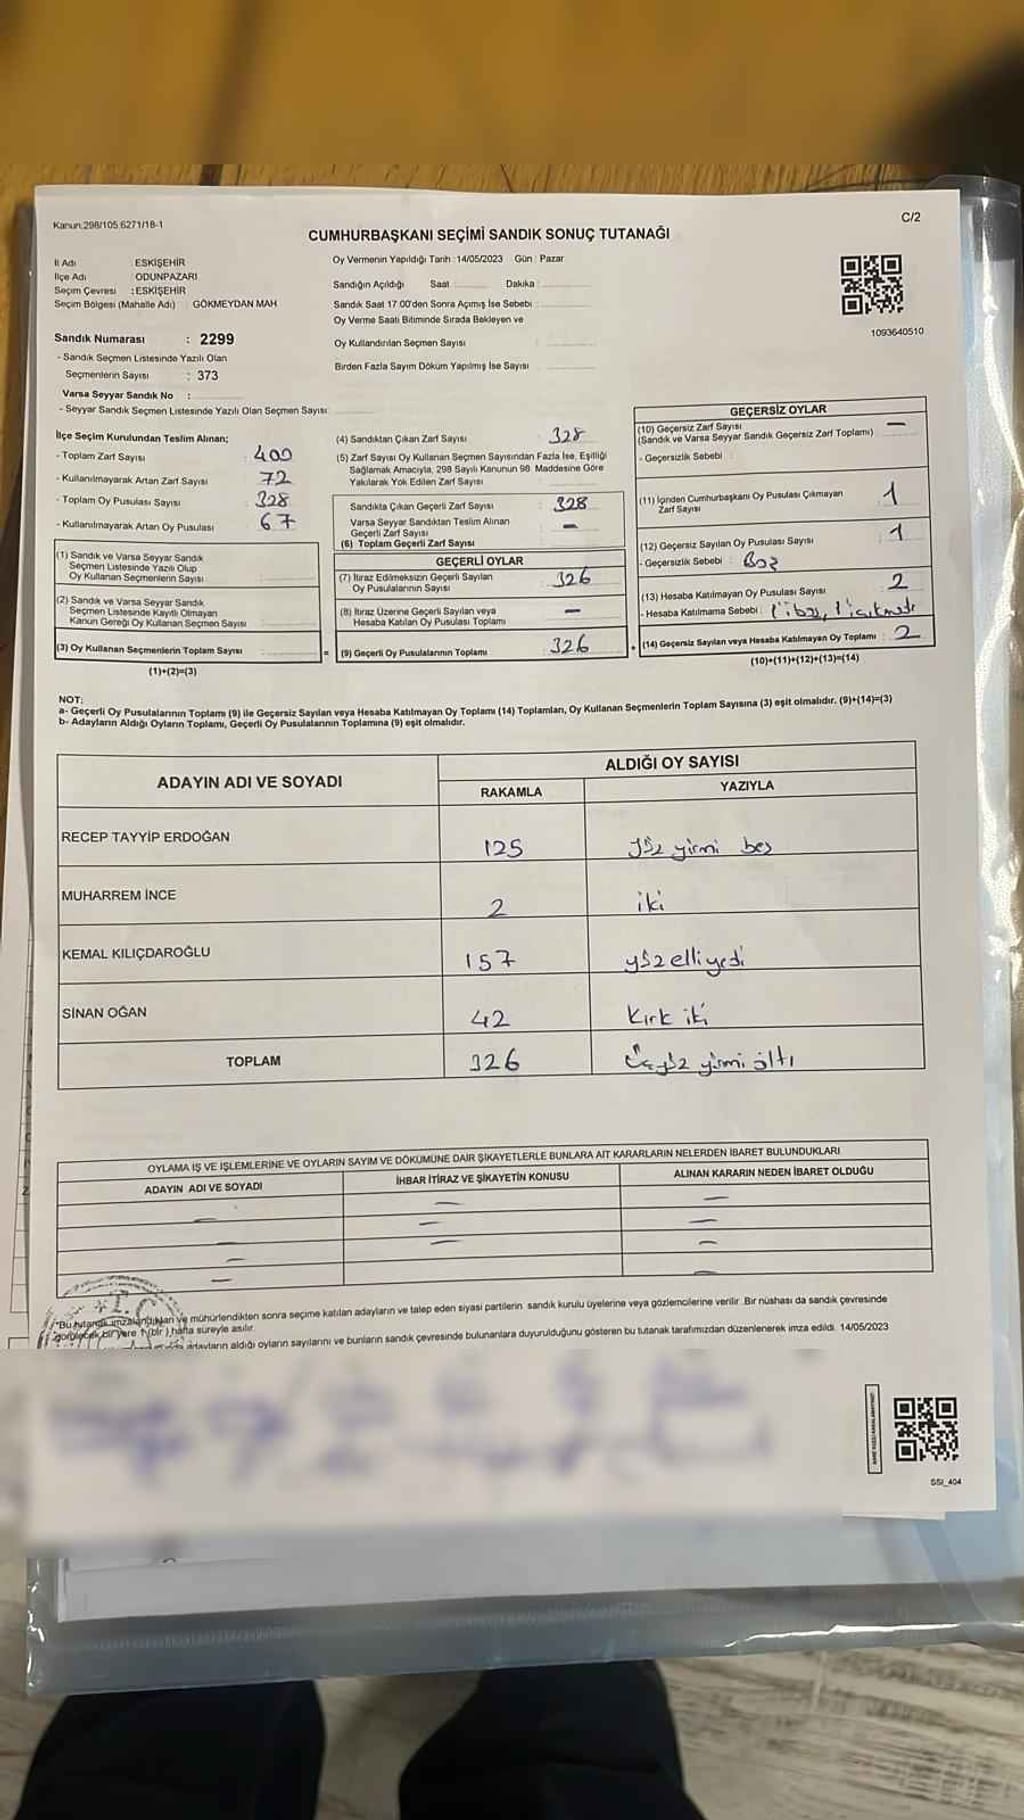 Kanun:298/105.6271/18-1
C/2
CUMHURBAŞKANI SEÇİMİ SANDIK SONUÇ TUTANAĞI
İl Adı : ESKİŞEHİR
İlçe Adı : ODUNPAZARI
Seçim Çevresi : ESKİŞEHİR
Seçim Bölgesi (Mahalle Adı) : GÖKMEYDAN MAH
Sandık Numarası : 2299
- Sandık Seçmen Listesinde Yazılı Olan
Seçmenlerin Sayısı : 373
Varsa Seyyar Sandık No :
- Seyyar Sandık Seçmen Listesinde Yazılı Olan Seçmen Sayısı
Oy Vermenin Yapıldığı Tarih : 14/05/2023 Gün : Pazar
Sandığın Açıldığı Saat Dakika
Sandık Saat 17.00'den Sonra Açımış İse Sebebi
Oy Verme Saati Bitiminde Sırada Bekleyen ve
Oy Kullandırılan Seçmen Sayısı
Birden Fazla Sayım Döküm Yapılmış İse Sayısı
1093640510
İlçe Seçim Kurulundan Teslim Alınan;
- Toplam Zarf Sayısı : 400
- Kullanılmayarak Artan Zarf Sayısı : 72
- Toplam Oy Pusulası Sayısı : 328
- Kullanılmayarak Artan Oy Pusulası : 67
(1) Sandık ve Varsa Seyyar Sandık
Seçmen Listesinde Yazılı Olup
Oy Kullanan Seçmenlerin Sayısı
(2) Sandık ve Varsa Seyyar Sandık
Seçmen Listesinde Kayıtlı Olmayan
Kanun Gereği Oy Kullanan Seçmen Sayısı
(3) Oy Kullanan Seçmenlerin Toplam Sayısı
(1)+(2)=(3)
(4) Sandıktan Çıkan Zarf Sayısı : 328
(5) Zarf Sayısı Oy Kullanan Seçmen Sayısından Fazla İse, Eşitliği
Sağlamak Amacıyla, 298 Sayılı Kanunun 98. Maddesine Göre
Yakılarak Yok Edilen Zarf Sayısı
Sandıkta Çıkan Geçerli Zarf Sayısı : 328
Varsa Seyyar Sandıktan Teslim Alınan
Geçerli Zarf Sayısı -
(6) Toplam Geçerli Zarf Sayısı
GEÇERLİ OYLAR
(7) İtiraz Edilmeksizin Geçerli Sayılan
Oy Pusulalarının Sayısı : 326
(8) İtiraz Üzerine Geçerli Sayılan veya
Hesaba Katılan Oy Pusulası Toplamı -
= (9) Geçerli Oy Pusulalarının Toplamı : 326
GEÇERSİZ OYLAR
(10) Geçersiz Zarf Sayısı -
(Sandık ve Varsa Seyyar Sandık Geçersiz Zarf Toplamı)
- Geçersizlik Sebebi
(11) İçinden Cumhurbaşkanı Oy Pusulası Çıkmayan
Zarf Sayısı 1
(12) Geçersiz Sayılan Oy Pusulası Sayısı 1
- Geçersizlik Sebebi : Boş
(13) Hesaba Katılmayan Oy Pusulası Sayısı : 2
- Hesaba Katılmama Sebebi :
+ (14) Geçersiz Sayılan veya Hesaba Katılmayan Oy Toplamı : 2
(10)+(11)+(12)+(13)=(14)
NOT:
a- Geçerli Oy Pusulalarının Toplamı (9) ile Geçersiz Sayılan veya Hesaba Katılmayan Oy Toplamı (14) Toplamları, Oy Kullanan Seçmenlerin Toplam Sayısına (3) eşit olmalıdır. (9)+(14)=(3)
b- Adayların Aldığı Oyların Toplamı, Geçerli Oy Pusulalarının Toplamına (9) eşit olmalıdır.
ADAYIN ADI VE SOYADI ALDIĞI OY SAYISI
RAKAMLA YAZIYLA
RECEP TAYYİP ERDOĞAN 125 yüz yirmi beş
MUHARREM İNCE 2 iki
KEMAL KILIÇDAROĞLU 157 yüzelliyedi
SİNAN OĞAN 42 kırk iki
TOPLAM 326 Üçyüz yirmi altı
OYLAMA İŞ VE İŞLEMLERİNE VE OYLARIN SAYIM VE DÖKÜMÜNE DAİR ŞİKAYETLERLE BUNLARA AİT KARARLARIN NELERDEN İBARET BULUNDUKLARI
ADAYIN ADI VE SOYADI İHBAR İTİRAZ VE ŞİKAYETİN KONUSU ALINAN KARARIN NEDEN İBARET OLDUĞU
T.C
*Bu tutanak imzalandıktan ve mühürlendikten sonra seçime katılan adayların ve talep eden siyasi partilerin sandık kurulu üyelerine veya gözlemcilerine verilir. Bir nüshası da sandık çevresinde
görülecek bir yere 1 (bir) hafta süreyle asılır.
adayların aldığı oyların sayılarını ve bunların sandık çevresinde bulunanlara duyurulduğunu gösteren bu tutanak tarafımızdan düzenlenerek imza edildi. 14/05/2023
SSI_404